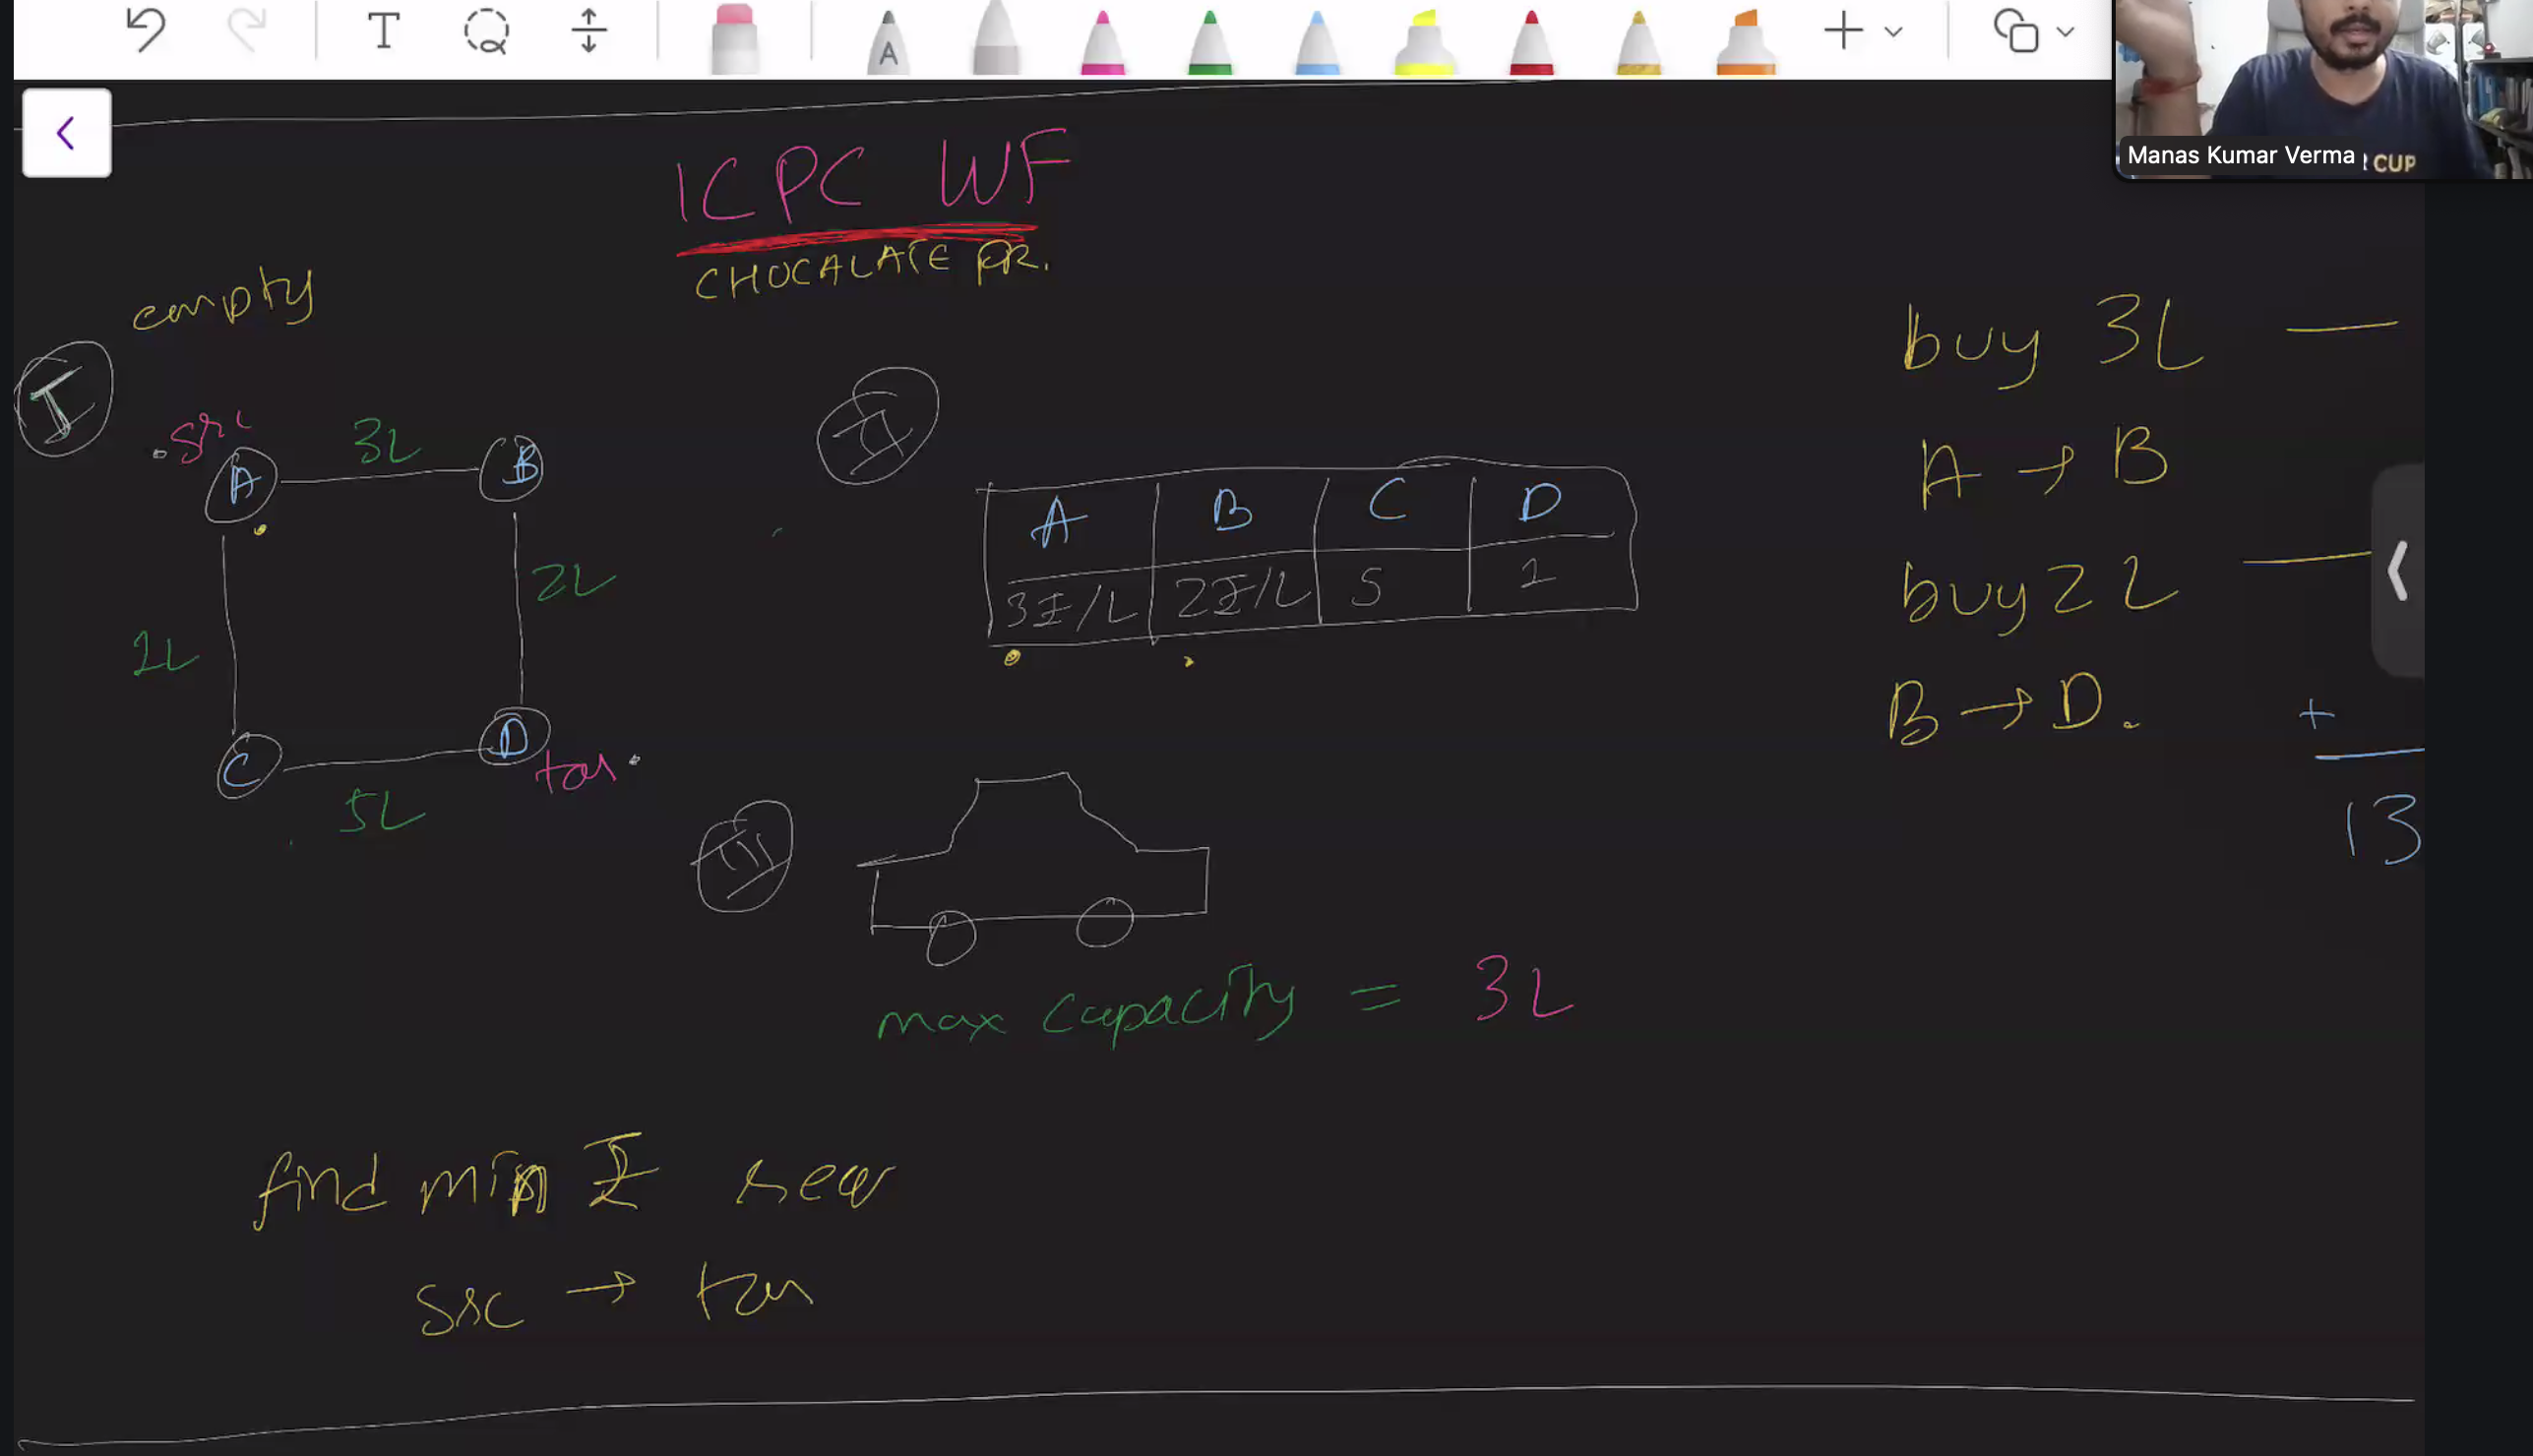 T
A
Manas Kumar Verma
CUP
ICPC WF
CHOCALATE PR.
empty
I
src
A
3L
B
2L
1L
C
D
tar
5L
II
A B C D
3₹/L 2₹/L 5 1
III
max capacity = 3L
find min ₹ req
src → tar
buy 3L —
A → B
buy 2L —
B → D.
+
13